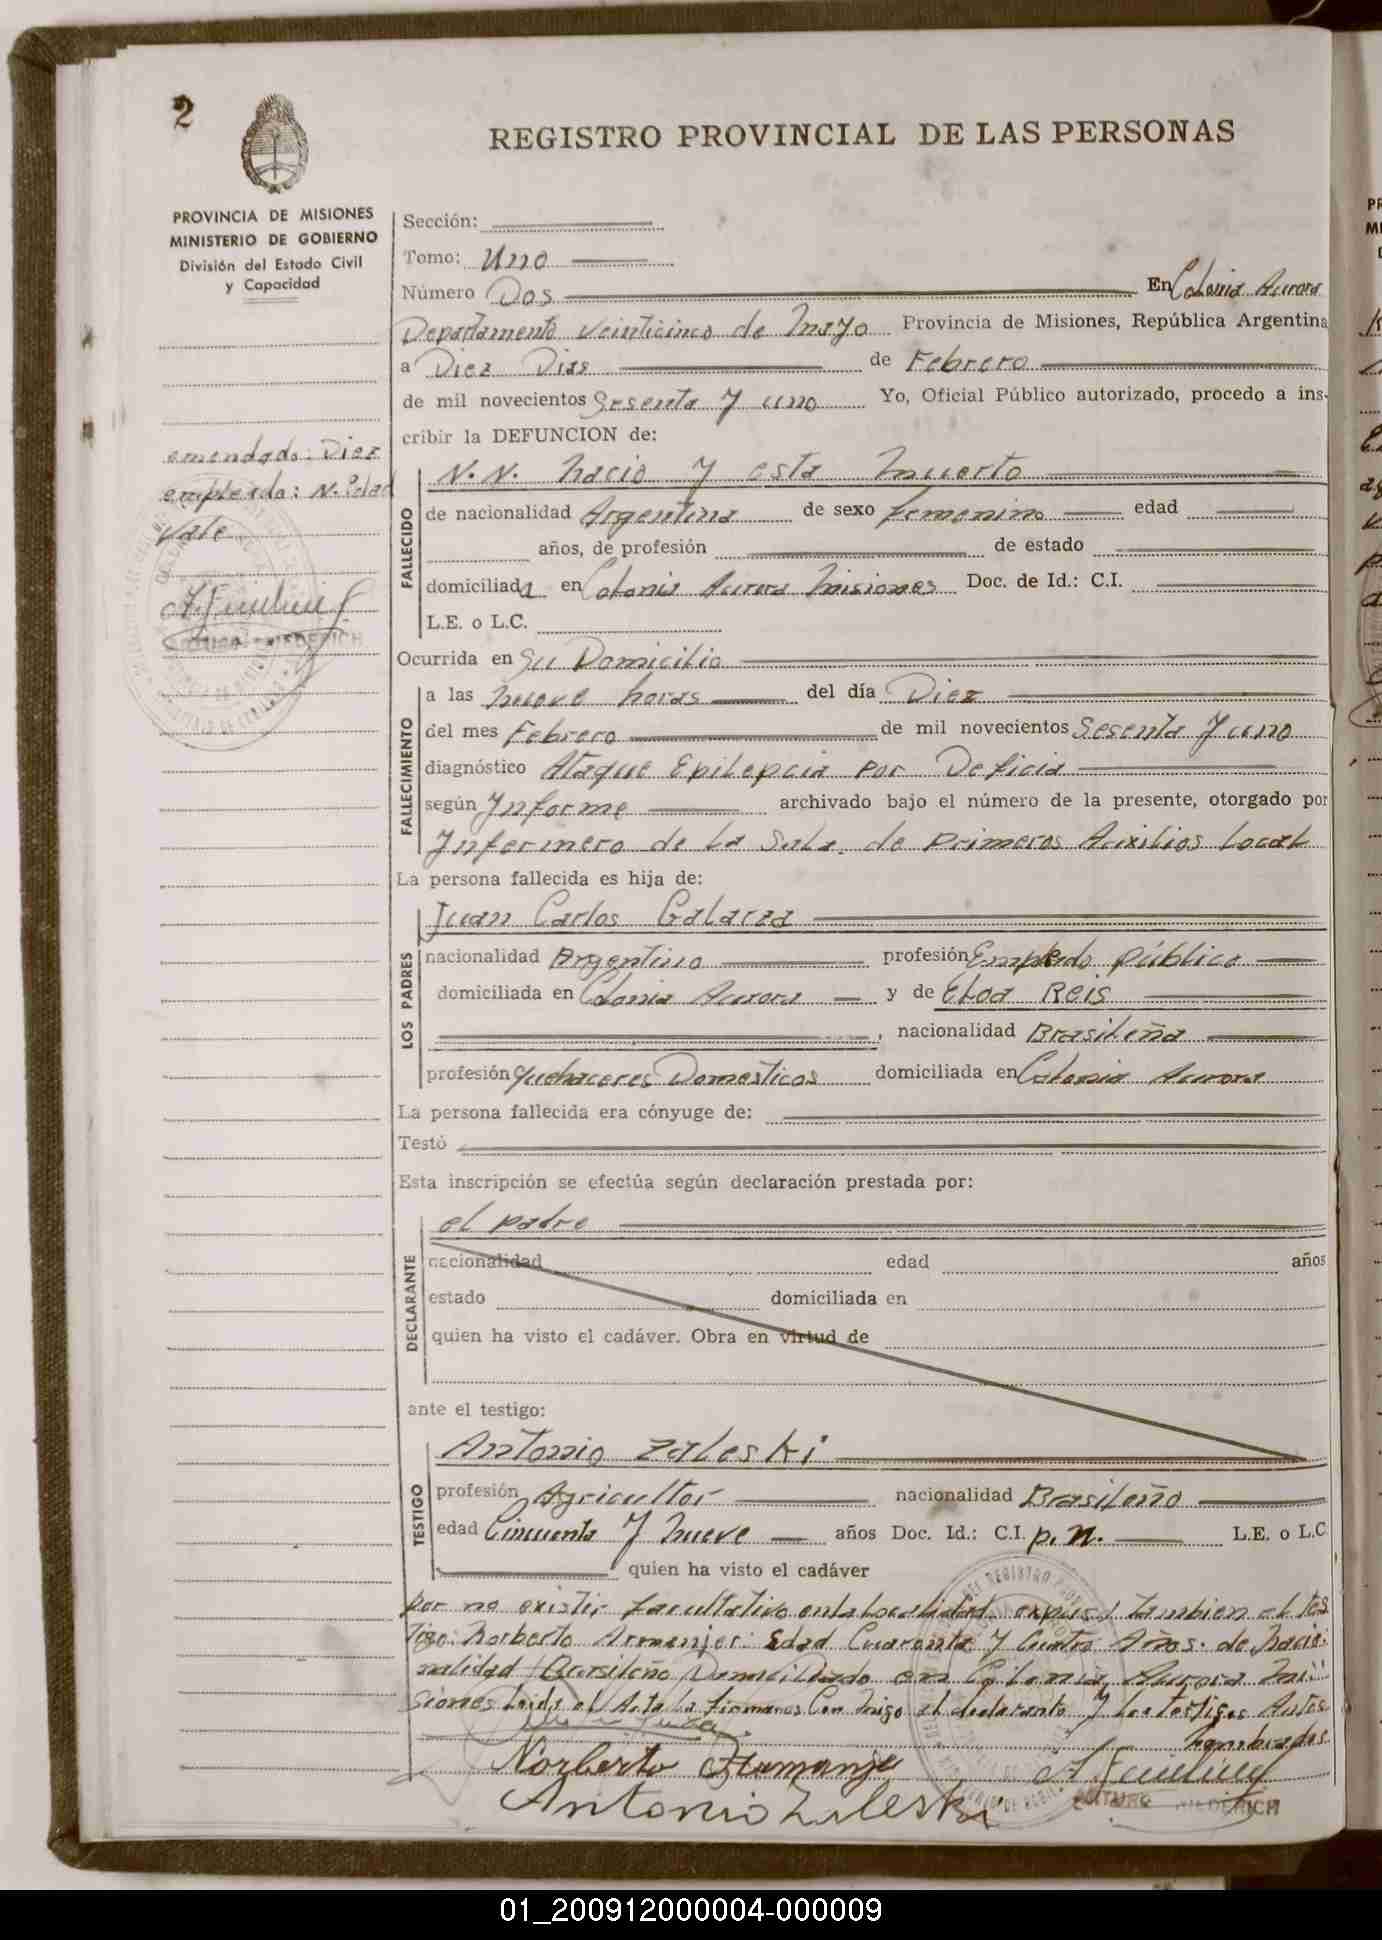 2
REGISTRO PROVINCIAL DE LAS PERSONAS
PROVINCIA DE MISIONES
MINISTERIO DE GOBIERNO
División del Estado Civil
y Capacidad
emendado: Diez
empleado: N. Edad
Vale
ARTURO FRIEDERICH
Sección:
Tomo: Uno
Número Dos En Colonia Aurora
Departamento Veinticinco de Mayo Provincia de Misiones, República Argentina
a Diez Dias de Febrero
de mil novecientos Sesenta y uno Yo, Oficial Público autorizado, procedo a ins-
cribir la DEFUNCION de:
FALLECIDO
N. N. nacio y esta muerto
de nacionalidad Argentina de sexo femenino edad
años, de profesión de estado
domiciliada en Colonia Aurora Misiones Doc. de Id.: C.I.
L.E. o L.C.
Ocurrida en Su Domicilio
FALLECIMIENTO
a las nueve horas del día Diez
del mes Febrero de mil novecientos Sesenta y uno
diagnóstico Ataque Epilepcia por Deficia
según Informe archivado bajo el número de la presente, otorgado por
Infermero de La Sala de primeros Auxilios Local
La persona fallecida es hija de:
LOS PADRES
Juan Carlos Galarza
nacionalidad Argentino profesión Empledo público
domiciliada en Colonia Aurora y de Eloa Reis
, nacionalidad Brasileña
profesión Quehaceres Domesticos domiciliada en Colonia Aurora
La persona fallecida era cónyuge de:
Testó
Esta inscripción se efectúa según declaración prestada por:
DECLARANTE
el padre
nacionalidad edad años
estado domiciliada en
quien ha visto el cadáver. Obra en virtud de
ante el testigo:
TESTIGO
Antonio Zaleski
profesión Agricultor nacionalidad Brasileño
edad Cincuenta y nueve años Doc. Id.: C.I. p.n. L.E. o L.C.
quien ha visto el cadáver
por no existir facultativo en la Localidad. expuso tambien el tes
tigo: Norberto Armenjer: Edad Cuarenta y Cuatro Años. de nacio-
nalidad Brasileño Domiciliado en Colonia Aurora Mi
siones Leida el Acta La firmamos Con migo el declarante y los testigos Antes
nombrados
Norberto
Antonio Zaleski
ARTURO FRIEDERICH
01_200912000004-000009